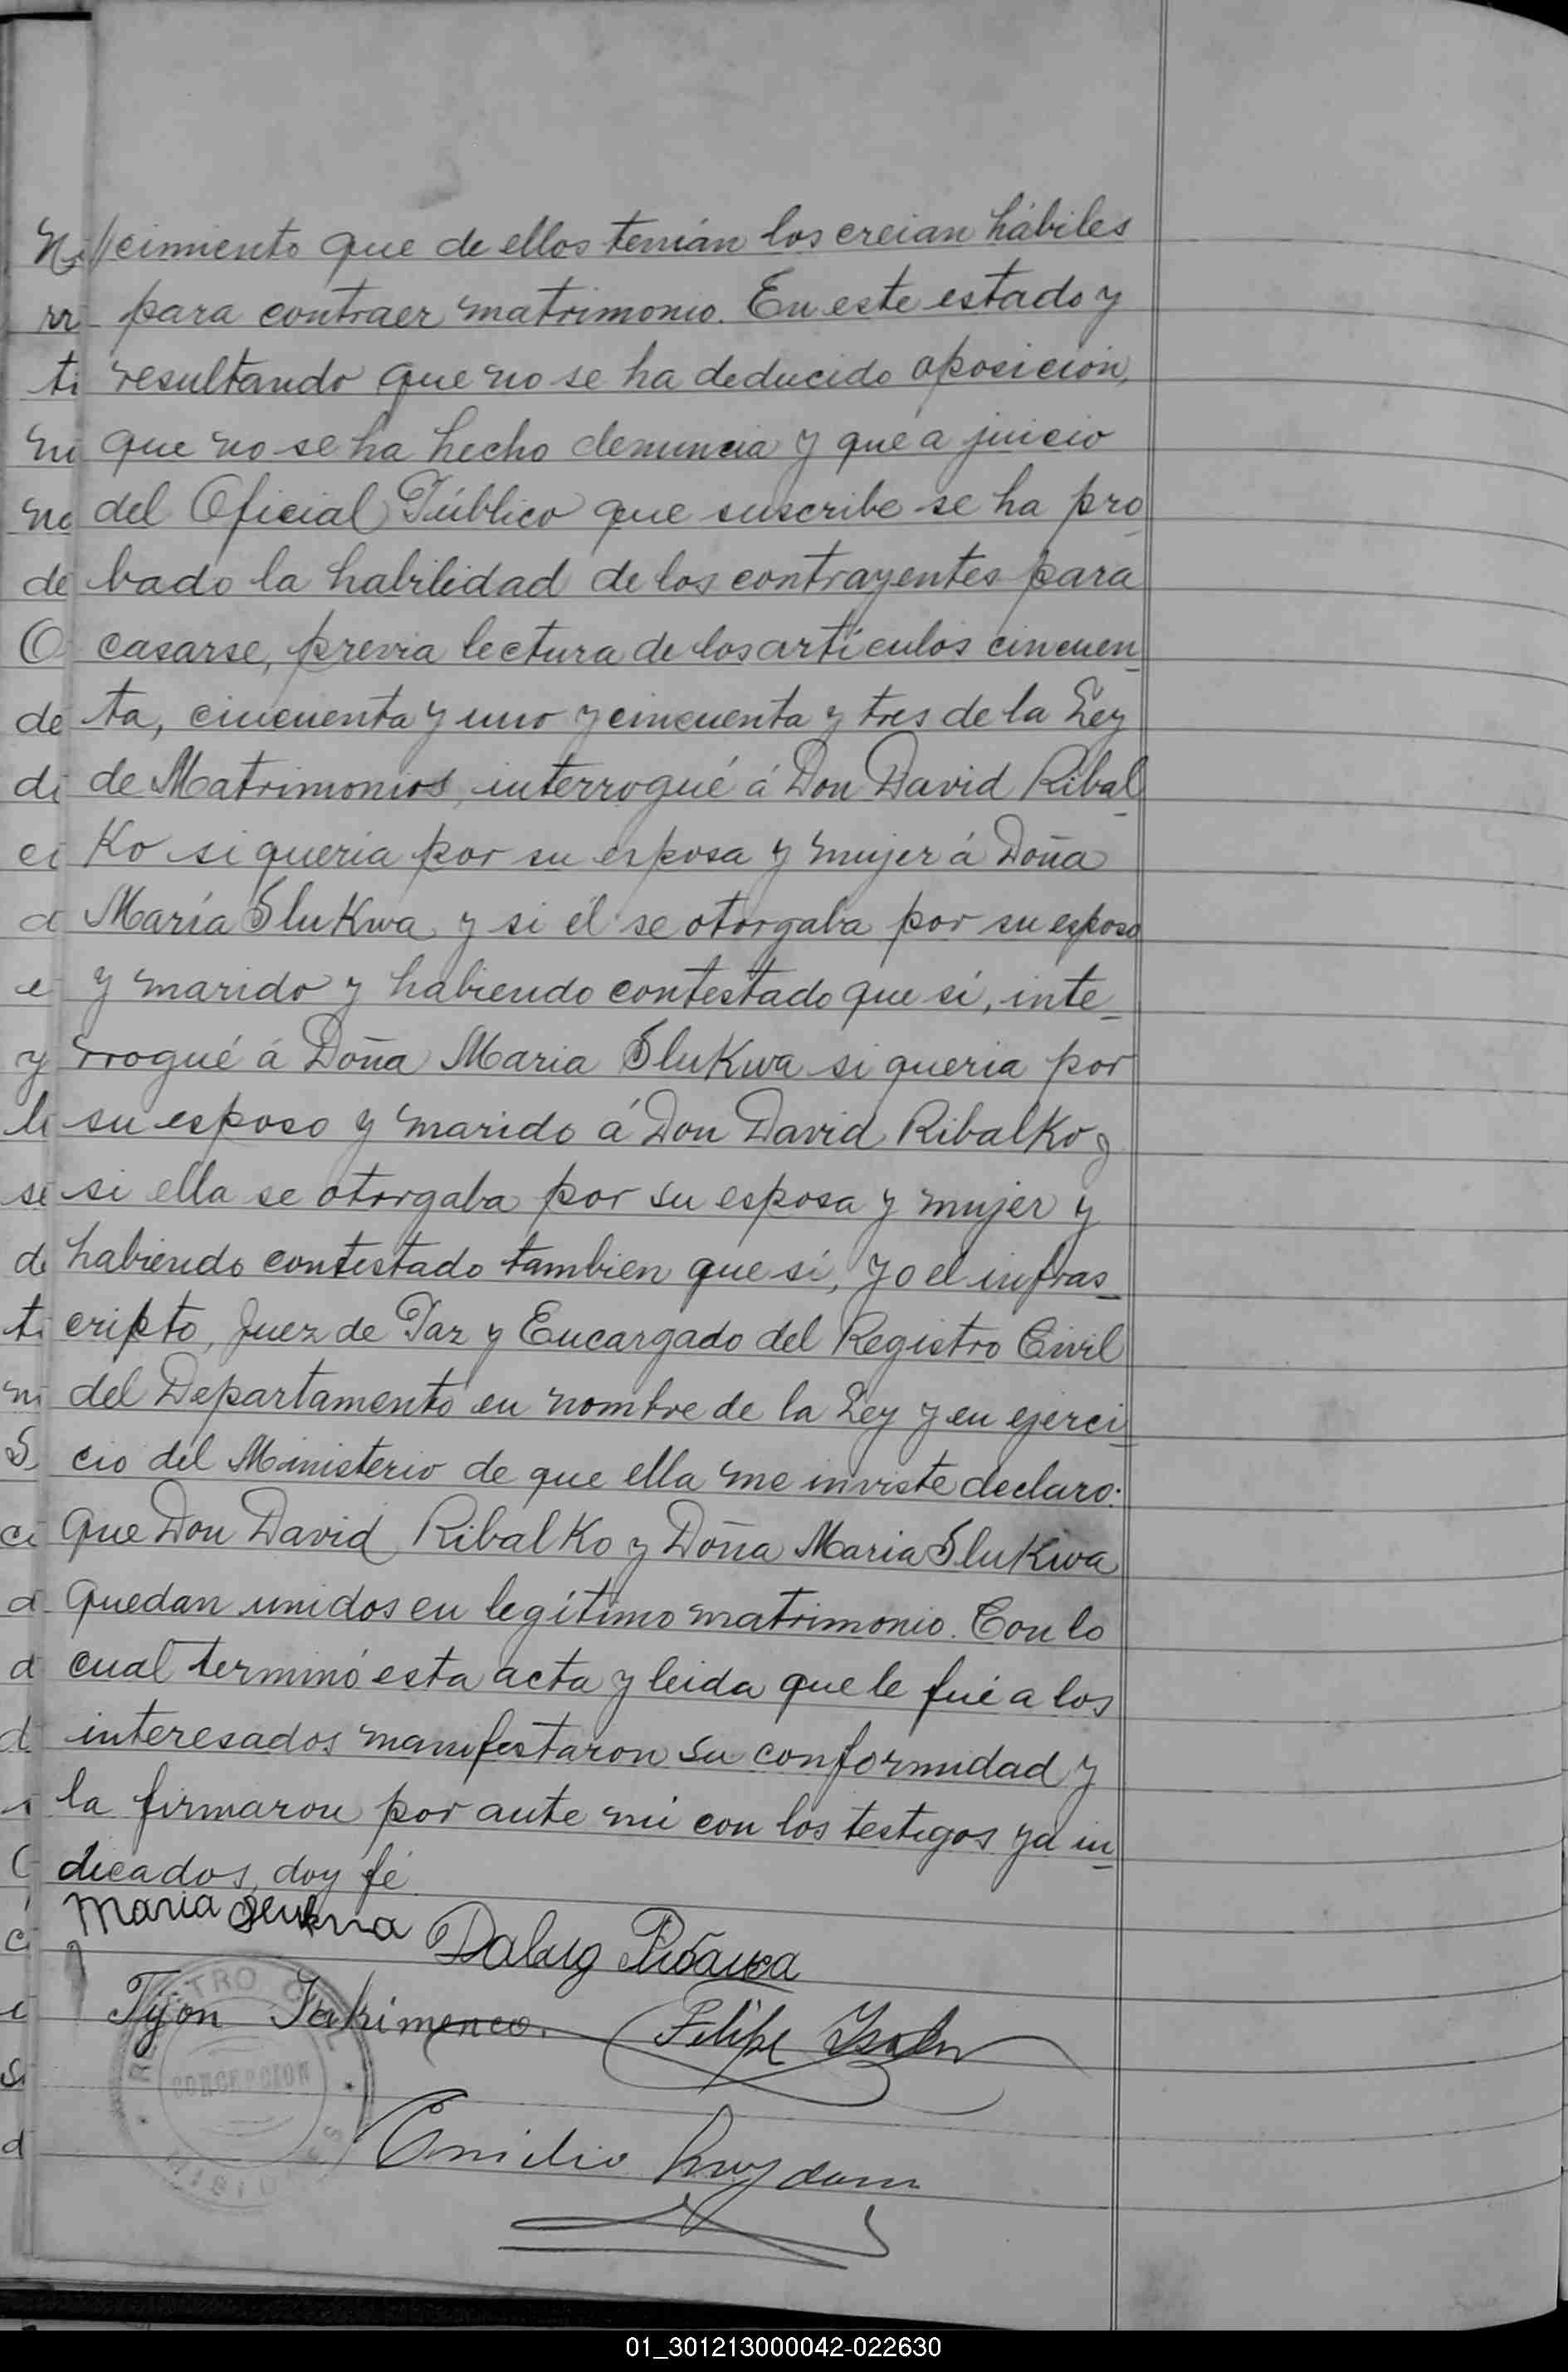 //cimiento que de ellos tenían los creian hábiles
para contraer matrimonio. En este estado y
resultando que no se ha deducido oposición,
que no se ha hecho denuncia y que a juicio
del Oficial Público que suscribe se ha pro
bado la habilidad de los contrayentes para
casarse, previa lectura de los artículos cincuen
ta, cincuenta y uno y cincuenta y tres de la Ley
de Matrimonios, interrogué á Don David Ribal
Ko si quería por su esposa y mujer á Doña
María SluKwa y si él se otorgaba por su esposo
y marido y habiendo contestado que si, inte_
rrogué á Doña Maria SluKwa si queria por
su esposo y marido á Don David RibalKo y
si ella se otorgaba por su esposa y mujer y
habiendo contestado tambien que si, yo el infras_
cripto, Juez de Paz y Encargado del Registro Civil
del Departamento en nombre de la Ley y en ejerci
cio del Ministerio de que ella me inviste declaro:
Que Don David RibalKo y Doña Maria SluKwa
quedan unidos en legítimo matrimonio. Con lo
cual terminó esta acta y leida que le fué a los
interesados manifestaron su conformidad y
la firmaron por ante mi con los testigos ya in
dicados, doy fé
Maria
Felipe
Emilio
REGISTRO CIVIL
CONCEPCION
MISIONES
01_301213000042-022630